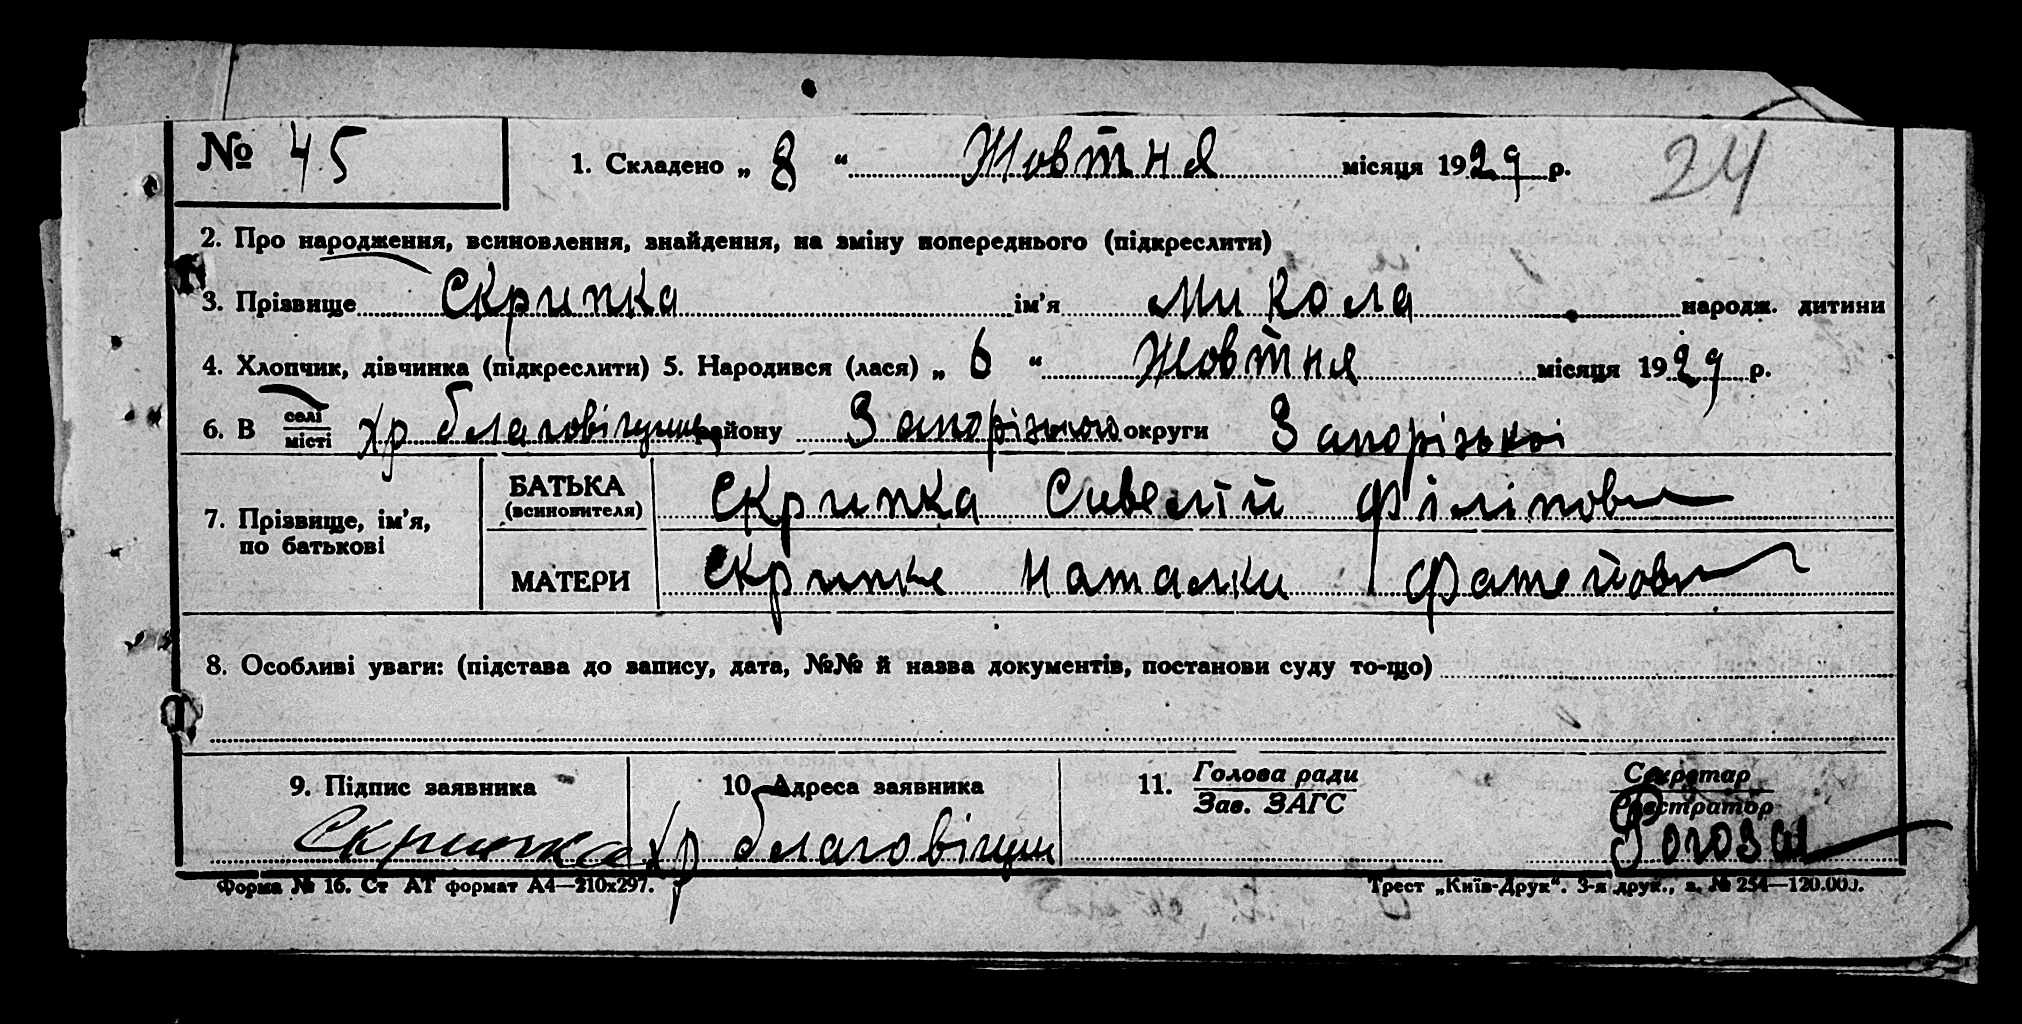 № 45 1. Складено „ 8 “ Жовтня місяця 1929 р. 24
2. Про народження, всиновлення, знайдення, на зміну попереднього (підкреслити)
3. Прізвище Скрипка ім’я Микола народж. дитини
4. Хлопчик, дівчинка (підкреслити) 5. Народився (лася) „ 6 “ Жовтня місяця 1929 р.
6. В селі місті хр району Запорізького округи Запорізькоі
7. Прізвище, ім’я, по батькові
БАТЬКА (всиновителя) Скрипка Філіпов
МАТЕРИ Скрипке Наталки Фатейовн
8. Особливі уваги: (підстава до запису, дата, №№ й назва документів, постанови суду то-що)
9. Підпис заявника 10. Адреса заявника 11. Голова ради Зав. ЗАГС Секретар Реєстратор
Скрипка хр благовіщен Рогоза
Форма № 16. Ст АТ формат А4—210х297. Трест „Київ-Друк“. 3-я друк., з. № 254—120.000.